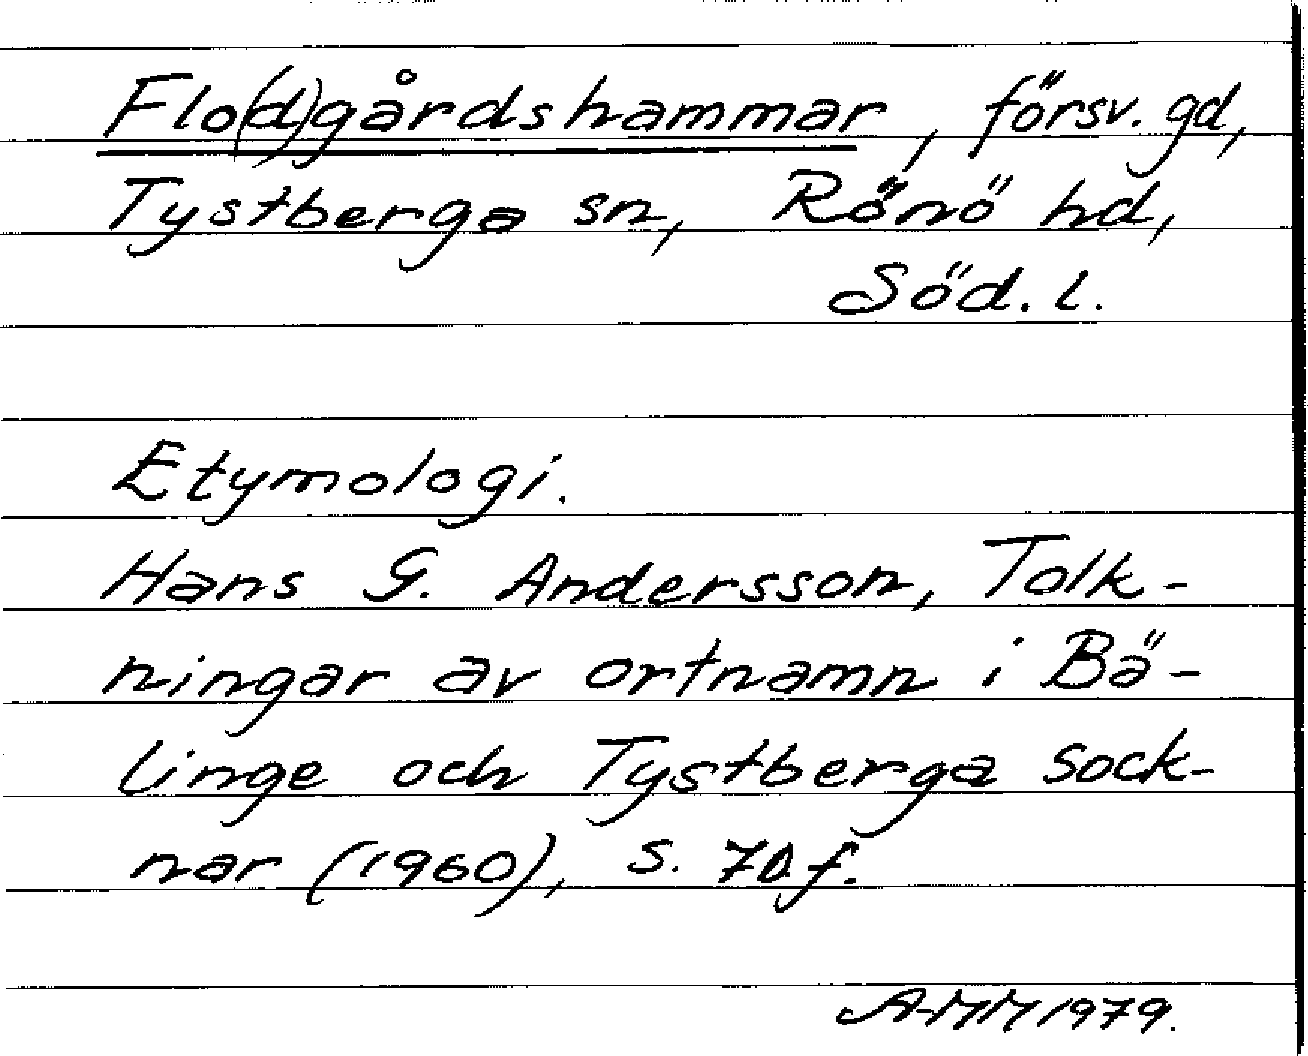 Flo(d)gårdshammar, försv. gd,
Tystberga sn, Rönö hd,
Söd. l.
Etymologi.
Hans G. Andersson, Tolk-
ningar av ortnamn i Bä-
linge och Tystberga sock-
nar (1960), s. 70.f.
A-MM 1979.